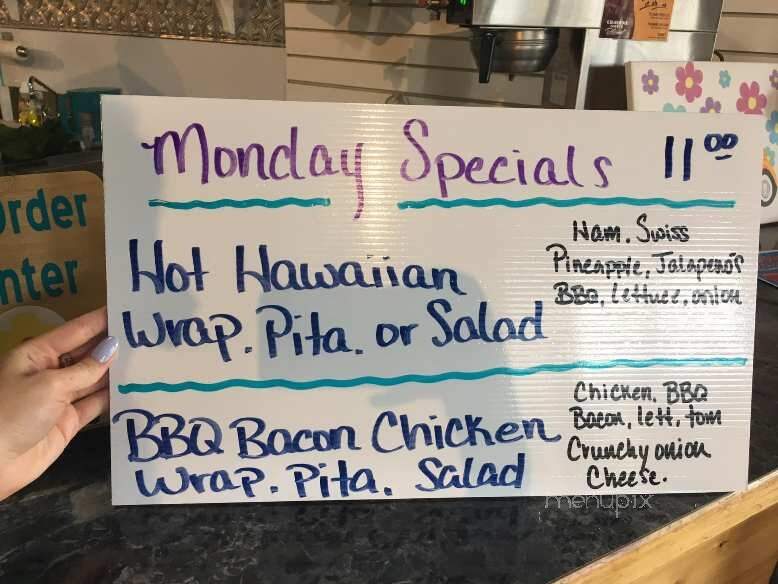 Monday Specials 11.00
Hot Hawaiian
Wrap. Pita. or Salad
Ham. Swiss
Pineapple, Jalapeno's
BBQ, Lettuce, onion
BBQ Bacon Chicken
Wrap. Pita. Salad
Chicken, BBQ
Bacon, lett, tom
Crunchy onion
Cheese.
rder
nter
menupix